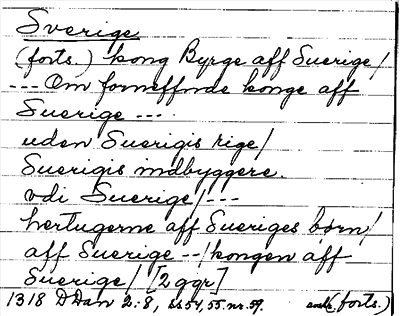 Sverige
(forts.) kong Byrge aff Suerige/
--- Om forneffnde konge aff
Suerige ---
uden Suerigis rige/
Suerigis indbyggere.
vdi Suerige/---
hertugerne aff Sueriges børn/
aff Suerige --/kongen aff
Suerige/ [2 ggr]
1318 DDan 2:8, ss 54, 55. nr. 59. (forts.)